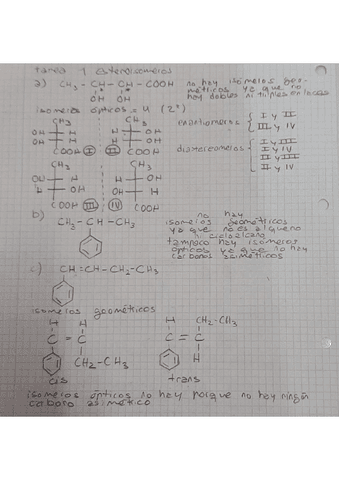 tarea 1 estereoisomeros
a) CH3 - CH - CH - COOH no hay isómeros geo-
OH OH métricos ya que no
hay dobles ni triples enlaces
isomeros ópticos = 4 (2²)
CH3 CH3
enantiomeros I y II
III y IV
OH H H OH
OH H H OH
COOH I II COOH
diastereomeros I y III
I y IV
II y III
II y IV
CH3 CH3
H OH OH H
H OH
COOH III IV COOH
b) CH3 - CH - CH3 no hay
isomeros geométricos
ya que no es alqueno
ni cicloalcano
tampoco hay isomeros
opticos ya que no hay
carbonos asimétricos
c) CH = CH - CH2 - CH3
isomeros geométricos
H H H CH2 - CH3
C = C C = C
CH2 - CH3 H
cis trans
isomeros ópticos no hay porque no hay ningún
carbono asimétrico